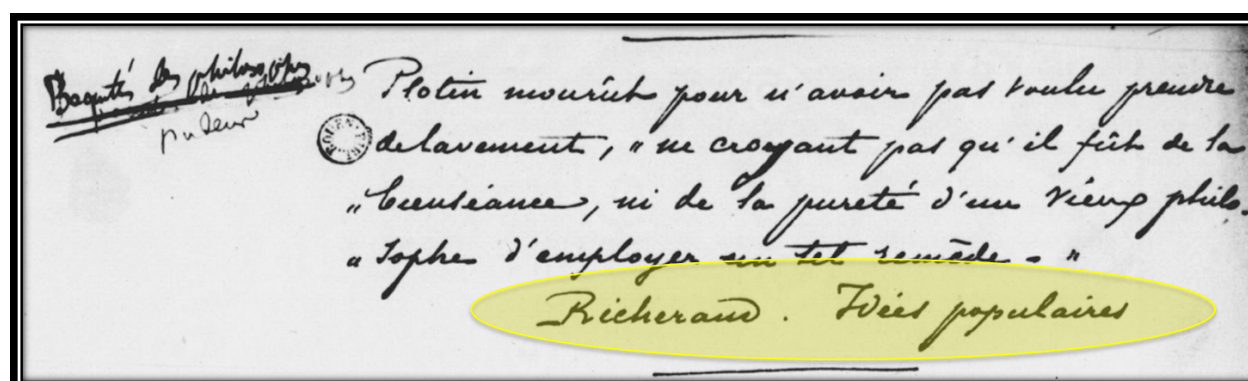 des philosophes
pudeur
Plotin mourût pour n'avoir pas voulu prendre
de lavement, " ne croyant pas qu'il fût de la
" bienséance, ni de la pureté d'un vieux philo-
" sophe d'employer un tel remède. "
Richerand. Idées populaires